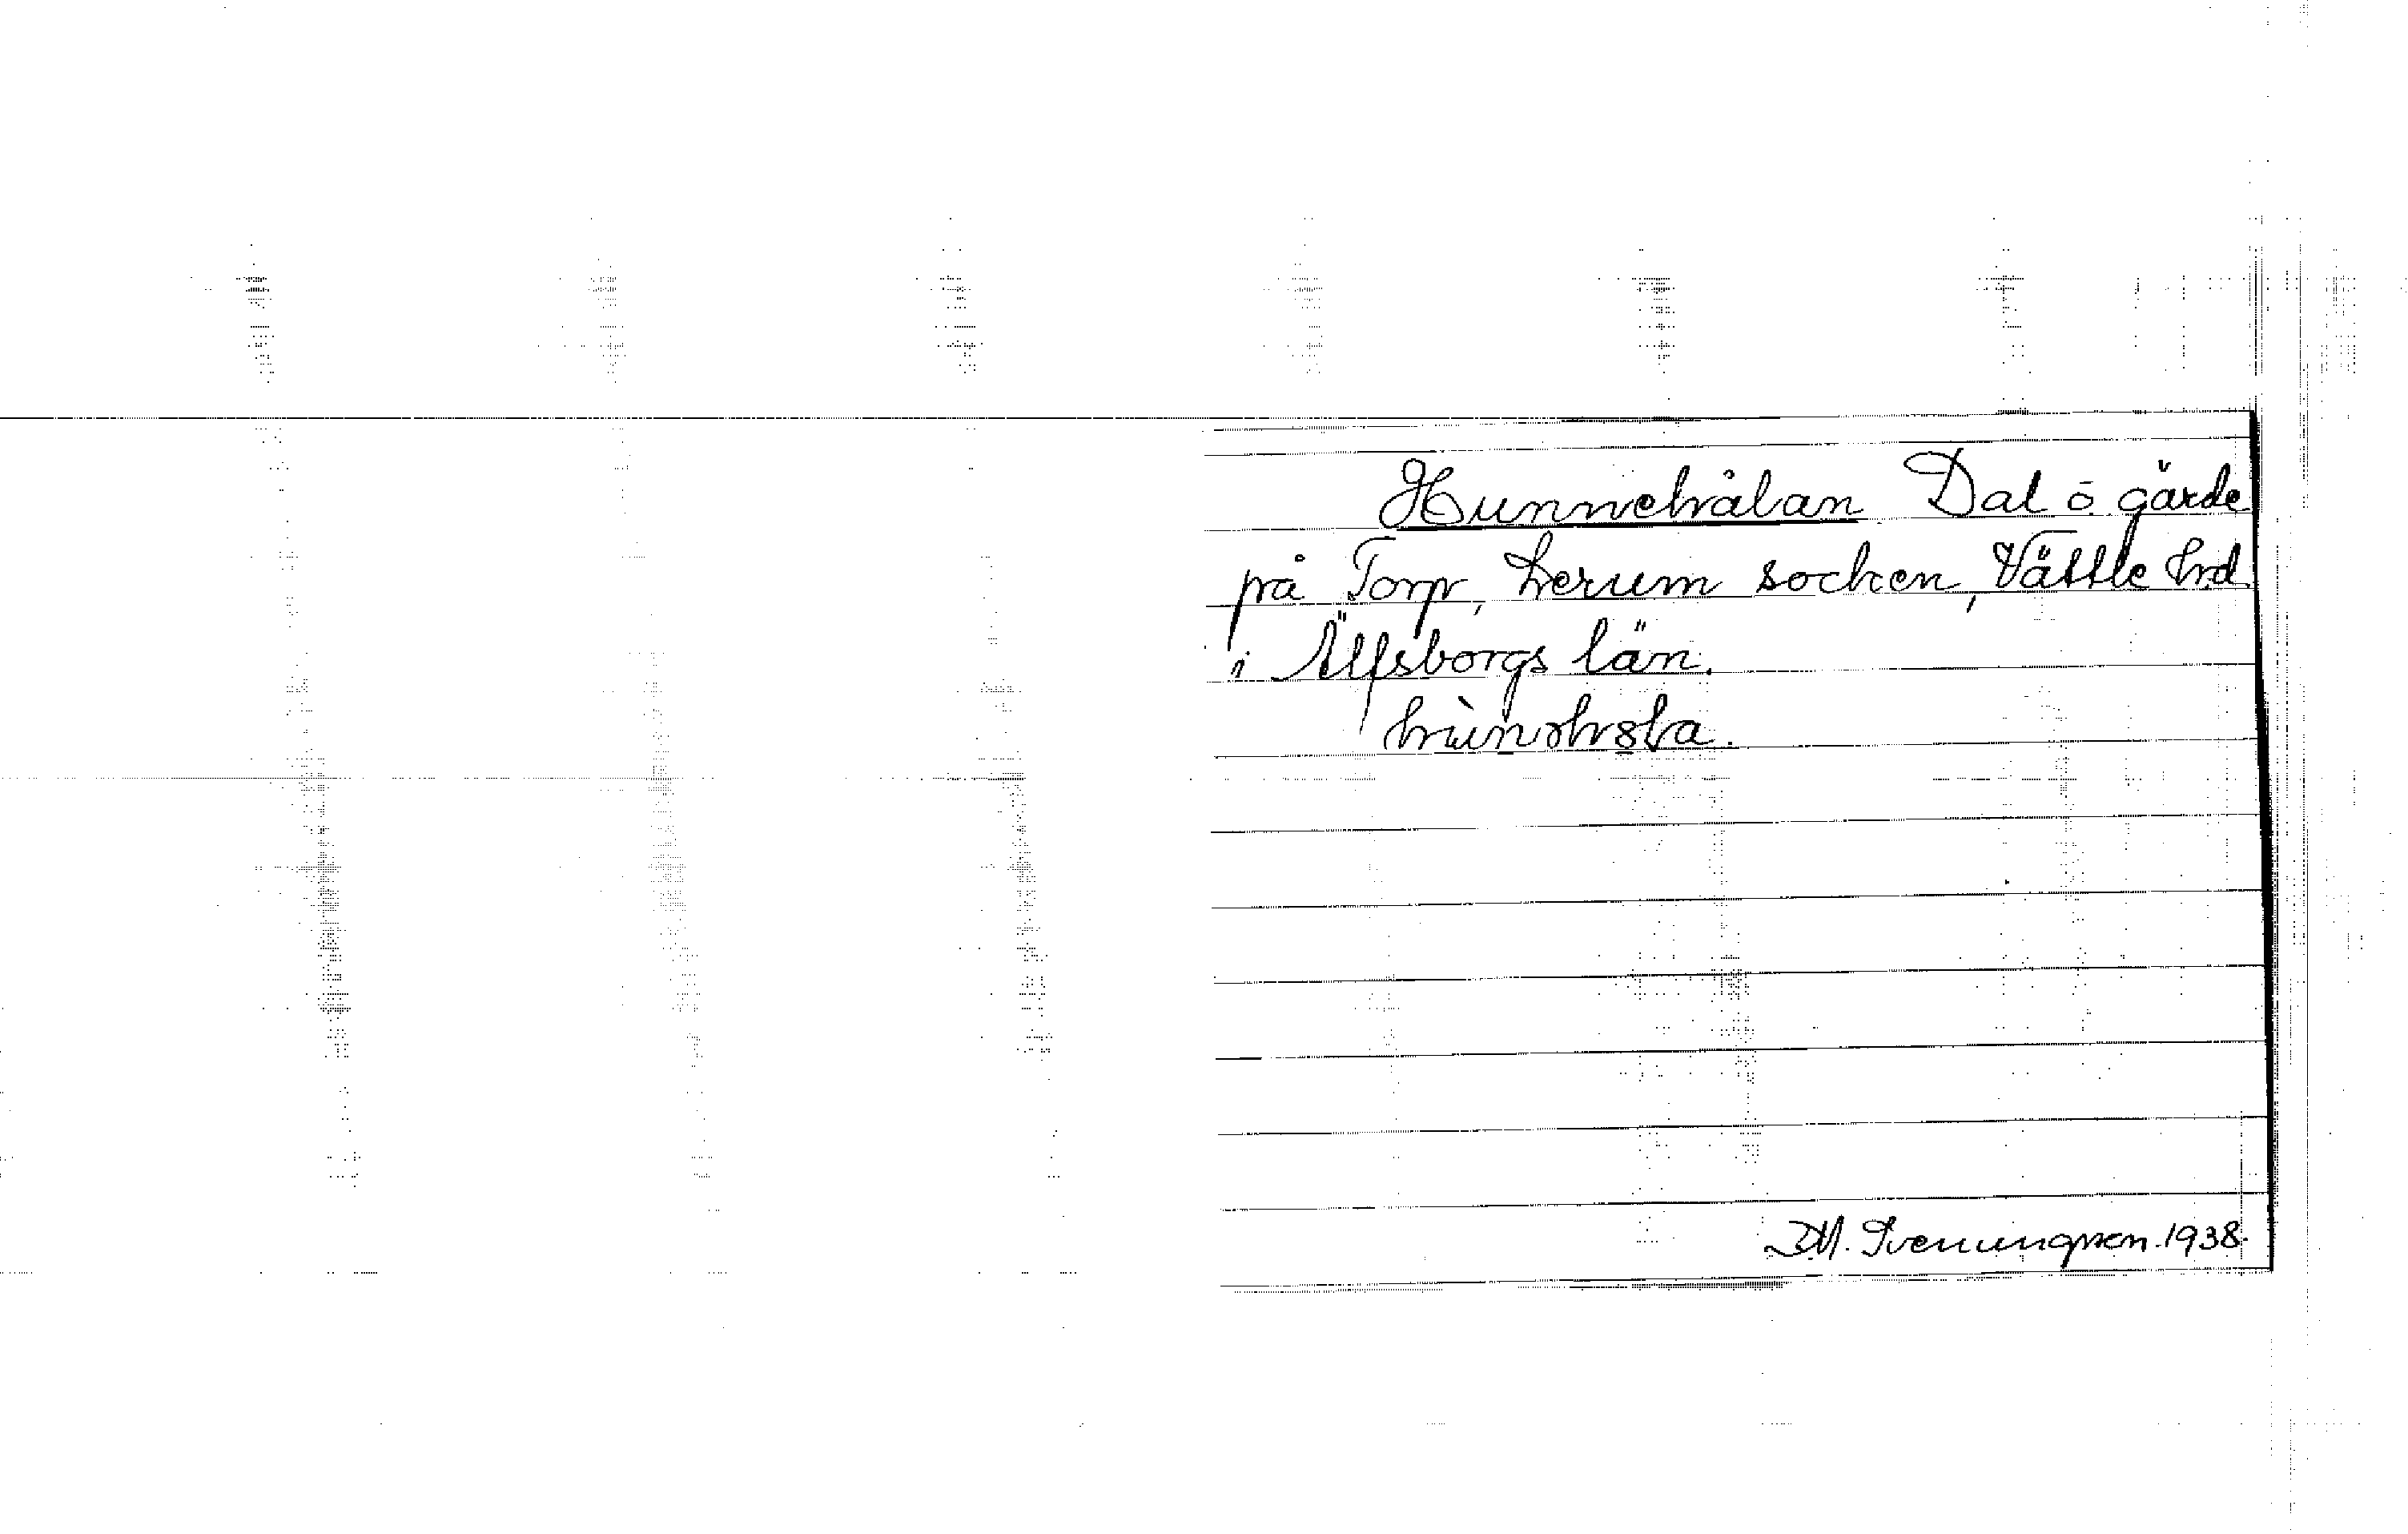 Hunnehålan Dal ō gärde
på Torp, Lerum socken, Vättle hrd
i Älfsborgs län.
D.M. Svenungsson. 1938.